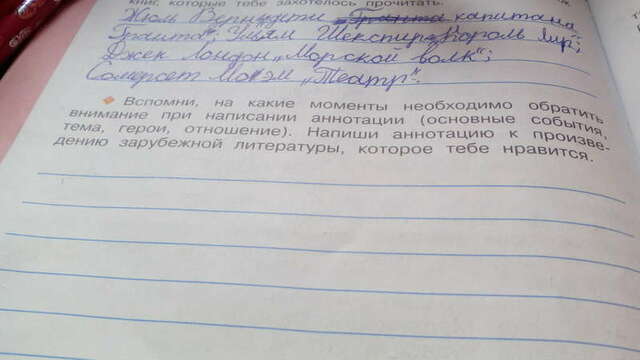 книг, которые тебе захотелось прочитать.
Жюль Верн „дети капитана
Гранта“; Уильям Шекспир „Король Лир“;
Джек Лондон „Морской волк“;
Сомерсет Моэм „Театр“.
◆ Вспомни, на какие моменты необходимо обратить
внимание при написании аннотации (основные события,
тема, герои, отношение). Напиши аннотацию к произве-
дению зарубежной литературы, которое тебе нравится.